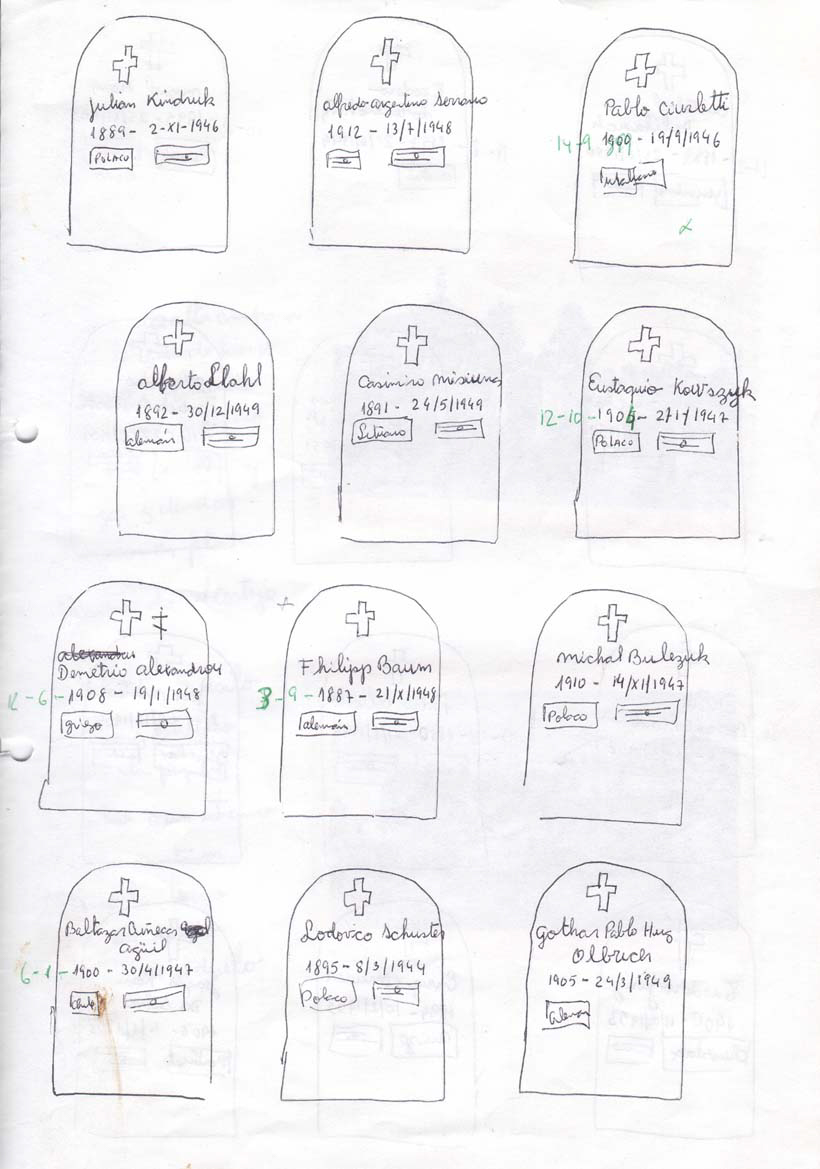 Julian Kindruk
1889 - 2-XI-1946
POLACO
Alfredo Argentino Serrano
1912 - 13/7/1948
Pablo Ciurletti
14-9 1900 - 19/9/1946
Italiano
Alberto Stahl
1892 - 30/12/1949
alemán
Casimiro
1891 - 24/5/1949
Lituano
Eustaquio
12-10-1904 - 2/1/1947
POLACO
Demetrio Alexandrou
12-6-1908 - 19/1/1948
griego
Fhilipp Baum
3-9-1887 - 21/X/1948
alemán
Michal Bulezuk
1910 - 14/XI/1947
Polaco
Baltazar
Agüil
6-1-1900 - 30/4/1947
Lodovico Schuster
1895 - 8/3/1944
Polaco
Gothar Pablo
Olbrich
1905 - 24/3/1949
alemán